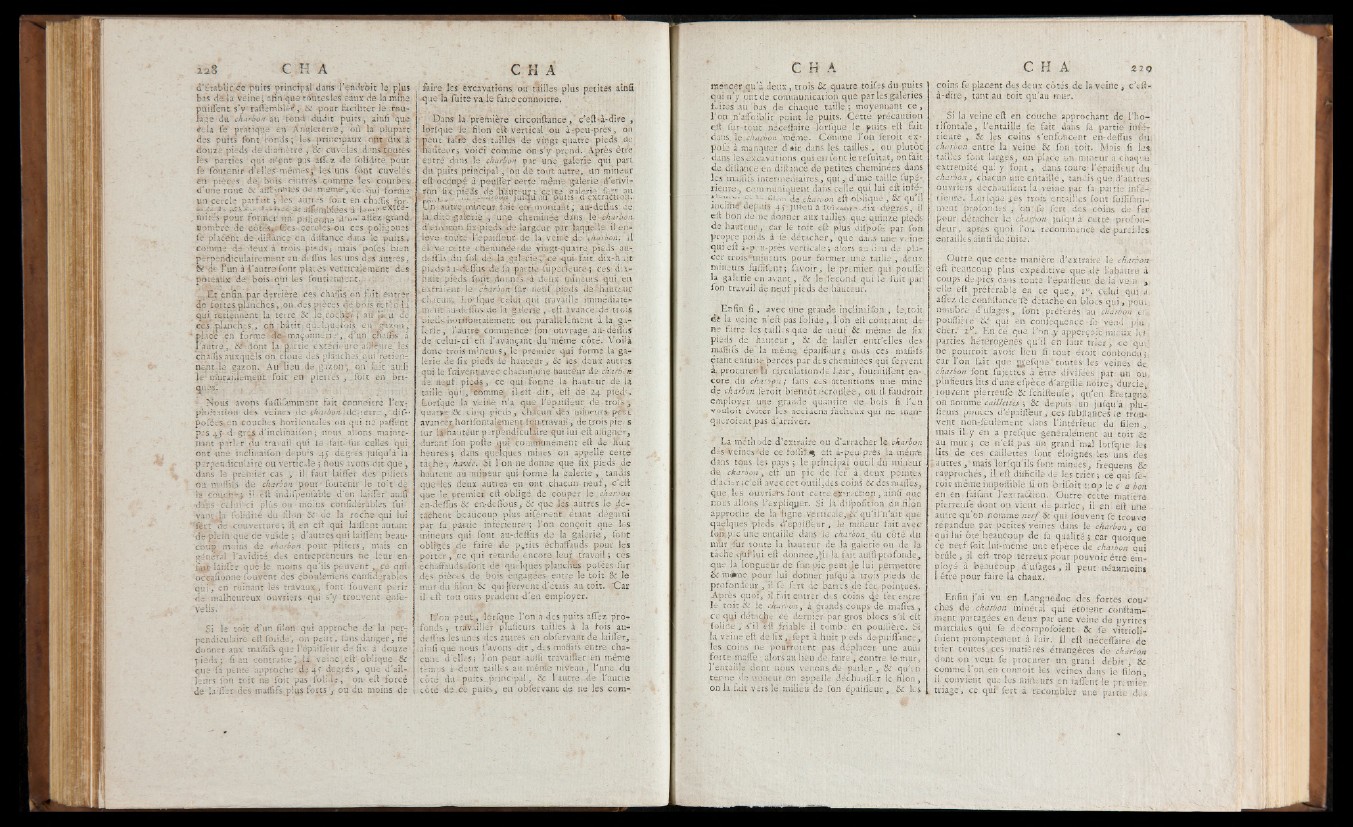 228 C H A
d'établir ce puits principal dans l'endroit le plus
bas de la veine ; afin que toutes les eaux de la mine
puissent s'y rassembler, & pour faciliter le
du charbon au fond dudit puits, ainsi que
cela se pratique en Angleterre, où la plupart
des puits sont ronds ; les principaux ont dix à
douze pieds de diamètre, & cuvelés dans toutes
les parties qui n'ont pas assez de solidité pour
se soutenir d'elles-mêmes ; les uns sont cuvelés
en pièces de bois cintrés comme les courbes
d'une roue & assemblés de même, ce qui forme
un cercle parfait ; les autres sont en chassis
assemblées à leurs
mités pour former un polygone d'un assez grand
nombre de côtés. Ces cercles ou ces polygones
se placent de distance en distance dans le puits,
comme de deux à trois pieds, mais posés bien
perpendiculairement en dessus les uns des autres,
& de l'un à l'autre sont placés verticalement des
poteaux de bois qui les soutiennent.
Et enfin par derrière ces chassis on fait entrer
de fortes planches, ou des pièces de bois
qui retiennent la terre & le rocher ; au lieu de
ces planches, on bâtit quelquefois en gazon,
placé en forme de maçonnerie, d'un chassis à
l'autre, & dont la partie extérieure
chassis auxquels on cloue des planches qui retien-
nent le gazon. Au lieu de gazon, on fait aussi
le muraillement soit en pierres, soit en bri-
ques.
Nous avons suffisamment fait connoitre l'ex-
ploitation des veines de charbon de terre, dis-
posées en couches horisontales ou qui ne passent
pas 45 degrés d'inclinaison ; nous allons mainte-
nant parler du travail qui se fait sur celles qui
ont une inclinaison depuis 45 degrés jusqu'à la
perpendiculaire ou verticale ; nous avons dit que,
dans le premier cas, il faut laisser des piliers
ou massifs de charbon pour soutenir le toit de
la couche ; il est indispensable d'en laisser aussi
dans celui-ci plus ou moins considérables sui-
vant la solidité du filon & de la roche qui lui
sert de couverture ; il en est qui laissent autant
de plein que de vuide ; d'autres qui laissent beau-
coup moins de charbon pour piliers, mais en
général l'avidité des entrepreneurs ne leur en
fait laisser que le moins qu'ils peuvent, ce qui
occasionne souvent des éboulemens considérables
qui, en ruinant les travaux, font souvent périr
de malheureux ouvriers qui s'y trouvent ense-
velis.
Si le toit d'un filon qui approche de la per-
pendiculaire est solide, on peut, sans danger, ne
donner aux massifs que l'épaisseur de six à douze
pieds ; si au contraire, la veine est oblique &
que sa pente approche de 45 degrés, que d'ail-
leurs son toit ne soit pas solide, on est forcé
de laisser des massifs plus forts, ou du moins de
C H A
faire les excavations ou tailles plus petites ainsi
que la suite va le faire connoitre.
Dans la première circonstance, c'est-à-dire,
lorsque le filon est vertical ou à-peu-près, on
peut faire des tailles de vingt-quatre pieds de
hauteur ; voici comme on s'y prend. Après être
entré dans le charbon par une galerie qui part
du puits principal, ou de tout autre, un mineur
est occupé à pousser cette même galerie d'envi-
ron six pieds de hauteur ; cette galerie sert au
jusqu'au puits d'extraction.
Un autre mineur fait en montant, au-dessus de
la dite galerie, une cheminée dans le charbon
d'environ six pieds de largeur par laquelle il en-
lève toute l'épaisseur de la veine de charbon ; il
élève cette cheminée de vingt-quatre pieds au-
dessus du sol de la galerie, ce qui fait dix-huit
pieds au-dessus de la partie supérieure ; ces dix-
huit pieds sont donnés à deux mineurs qui en
extraient le charbon sur neuf pieds de hauteur
chacun. Lorsque celui qui travaille immédiate-
ment au-dessus de la galerie, est avancé de trois
pieds horisontalement ou parallèlement à la ga-
lerie, l'autre commence son ouvrage au-dessus
de celui-ci en l'avançant du même côté. Voilà
donc trois mineurs, le premier qui forme la ga-
lerie de six pieds de hauteur, & les deux autres
qui le suivent avec chacun une hauteur de charbon
de neuf pieds, ce qui donne la hauteur de la
taille qui, comme il est dit, est de 24 pieds.
Lorsque la veine n'a que l'épaisseur de trois,
quatre & cinq pieds, chacun des mineurs peut
avancer horisontalement son travail, de trois pieds
sur la hauteur perpendiculaire qui lui est assignée,
durant son poste qui communément est de huit
heures ; dans quelques mines on appelle cette
tâche, havée. Si l'on ne donne que six pieds de
hauteur au mineur qui forme la galerie, tandis
que les deux autres en ont chacun neuf, c'est
que le premier est obligé de couper le charbon
en-dessus & en-dessous, & que les autres le dé-
tachent beaucoup plus aisément étant dégarni
par sa partie inférieure ; l'on conçoit que les
mineurs qui sont au-dessus de la galerie, sont
obligés de faire de petits échaffauds pour les
porter, ce qui retarde encore leur travail ; ces
échaffauds sont de quelques planches posées sur
des pièces de bois engagées entre le toit & le
mur du filon & qui servent d'étais au toit. Car
il est toujours prudent d'en employer.
L'on peut, lorsque l'on a des puits assez pro-
fonds, travailler plusieurs tailles à la fois au-
dessus les unes des autres en observant de laisser,
ainsi que nous l'avons dit, des massifs entre cha-
cune d'elles ; l'on peut aussi travailler en même
temps à deux tailles en même niveau, l'une du
côté du puits principal, & l'autre de l'autre
côté de ce puits, en observant de ne les com-
C H A
mencer qu'à deux, trois & quatre toises du puits
qui n'y ont de communication que par les galeries
faites au bas de chaque taille ; moyennant ce,
l'on n'affoiblit point le puits. Cette précaution
est sur-tout nécessaire lorsque le puits est fait
dans le charbon même. Comme l'on seroit ex-
posé à manquer d'air dans les tailles, ou plutôt
dans les excavations qui en sont le résultat, on fait
de distance en distance de petites cheminées dans
les massifs intermédiaires, qui, d'une taille supé-
rieure, communiquent dans celle qui lui est infé-
de charbon est oblique, & qu'il
incline depuis 45 jusqu'à soixante-dix degrés, il
est bon de ne donner aux tailles que quinze pieds
de hauteur, car le toit est plus disposé par son
propre poids à se détacher, que dans une veine
qui est à-peu-près verticale ; alors au lieu de pla-
cer trois mineurs pour former une taille, deux
mineurs suffisent ; savoir, le premier qui pousse
la galerie en avant, & le second qui le suit par
son travail de neuf pieds de hauteur.
Enfin si, avec une grande inclinaison, le toit
de la veine n'est pas solide, l'on est contraint de
ne faire les tailles que de neuf & même de six
pieds de hauteur, & de laisser entr'elles des
massifs de la même épaisseur ; mais ces massifs
étant ensuite percés par des cheminées qui servent
à procurer la circulation de l'air, fournissent en-
core du charbon ; sans ces attentions une mine
de charbon seroit bientôt écroulée, ou il faudroit
employer une grande quantité de bois si l'on
vouloit éviter les accidens fâcheux qui ne man-
queroient pas d'arriver.
La méthode d'extraire ou d'arracher le charbon
des veines de ce fossile est à-peu-près la même
dans tous les pays ; le principal outil du mineur
de charbon, est un pic de fer à deux pointes
d'acier ; c'est avec cet outil, des coins & des masses,
que les ouvriers font cette extraction, ainsi que
nous allons l'expliquer. Si la disposition du filon
approche de la ligne verticale, & qu'il n'ait que
quelques pieds d'épaisseur, le mineur fait avec
son pic une entaille dans le charbon du côté du
mur sur toute la hauteur de la galerie ou de la
tâche qui lui est donnée, il la fait aussi profonde
que la longueur de son pic peut le lui permettre
& même pour lui donner jusqu'à trois pieds de
profondeur, il se sert de barres de fer pointues.
Après quoi, il fait entrer des coins de fer entre
le toit & le charbon, à grands coups de masses,
ce qui détache ce dernier par gros blocs s'il est
solide, s'il est friable il tombe en poussière. Si
la veine est de six, sept à huit pieds d'épaisseur,
les coins ne pourroient pas déplacer une aussi
forte masse ; alors au lieu de faire, contre le mur,
l'entaille dont nous venons de parler, & qu'en
terme de mineur on appelle déchausser le filon,
on la fait vers le milieu de son épaisseur, & les
C H A 229
coins se placent des deux côtés de la veine, c'est-
à-dire, tant au toit qu'au mur.
Si la veine est en couche approchant de l'ho-
risontale, l'entaille se fait dans sa partie infé-
rieure, & les coins s'enfoncent en-dessus du
charbon entre la veine & son toit. Mais si les
tailles sont larges, on place un mineur à chaque
extrémité qui y font, dans toute l'épaisseur du
charbon, chacun une entaille, tandis que d'autres
ouvriers déchaussent la veine par sa partie infé-
rieure. Lorsque ces trois entailles sont suffisam-
ment profondes, on se sert des coins de fer
pour détacher le charbon jusqu'à cette profon-
deur, après quoi l'on recommence de pareilles
entailles ainsi de suite.
Outre que cette manière d'extraire le charbon
est beaucoup plus expéditive que de l'abattre à
coups de pics dans toute l'épaisseur de la veine,
elle est préférable en ce que, 1°. celui qui a
assez de consistance se détache en blocs qui, pour
nombre d'usages, sont préférés au charbon en
poussière & qui en conséquence se vend plus
cher, 2°. En ce que l'on y apperçoit mieux les
parties hétérogènes qu'il en faut trier, ce qui
ne pourroit avoir lieu si tout étoit confondu ;
car l'on sait que presque toutes les veines de
charbon sont sujettes à être divisées par un ou
plusieurs lits d'une espèce d'argille noire, durcie,
souvent pierreuse & schisteuse, qu'en Bretagne
on nomme caillettes ; & depuis un jusqu'à plu-
sieurs pouces d'épaisseur, ces substances se trou-
vent non-seulement dans l'intérieur du filon,
mais il y en a presque généralement au toit &
au mur ; ce n'est pas un grand mal lorsque les
lits de ces caillettes sont éloignés les uns des
autres, mais lorsqu'ils sont minces, fréquens &
rapprochés, il est difficile de les trier ; ce qui se-
roit même impossible si on brisoit trop le charbon
en en faisant l'extraction. Outre cette matière
pierreuse dont on vient de parler, il en est une
autre qu'on nomme nerf & qui souvent se trouve
répandue par petites veines dans le charbon, ce
qui lui ôte beaucoup de sa qualité ; car quoique
ce nerf soit lui-même une espèce de charbon qui
brûle, il est trop terreux pour pouvoir être em-
ployé à beaucoup d'usages, il peut néanmoins
l'être pour faire la chaux.
Enfin j'ai vu en Languedoc des fortes cou-
ches de charbon minéral qui étoient constam-
ment partagées en deux par une veine de pyrites
martiales qui se décomposoient & se vitrioli-
soient promptement à l'air. Il est nécessaire de
trier toutes ces matières étrangères de charbon
dont on veut se procurer un grand débit, &
comme l'on en connoit les veines dans le filon,
il convient que les mineurs en fassent le premier
triage, ce qui sert à recombler une partie des